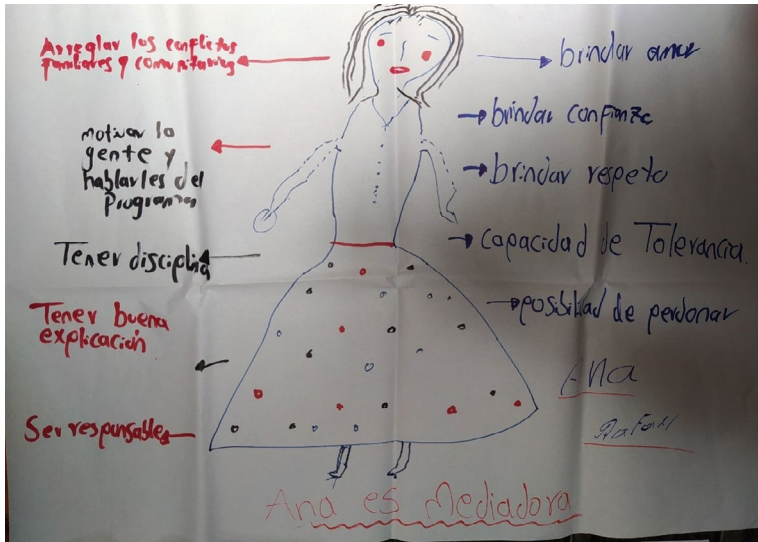 Arreglar los conflictos
familiares y comunitarios
motivar la
gente y
hablarles del
Programa
Tener disciplina
Tener buena
explicación
Ser responsables
brindar amor
brindar confianza
brindar respeto
capacidad de Tolerancia.
posibilidad de perdonar
Ana
Ana es Mediadora